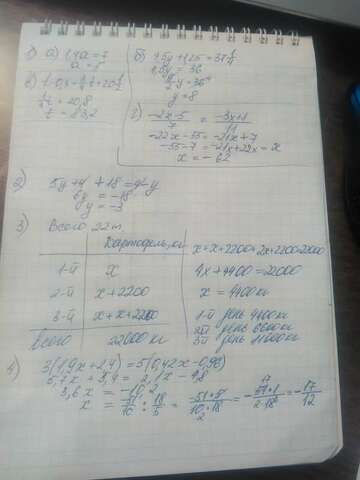 1) а) 1,4a = 7
a = 5
б) 4,5y + 1,25 = 37 1/4
y = 36
1/2 y = 36
y = 8
в) t - 0,x + t = 20 1/2
t = 20,8
t = 83,2
г) -2x-5 / 7 = -3x+1 / 11
-22x - 55 = -21x + 7
-55 - 7 = -21x + 22x = x
x = -62
2) 5y + 4 + 18 = 4 - y
6y = -18
y = -3
3) Всего 22т
Картофель, кг
1-й x
2-й x + 2200
3-й x + x + 2200
Всего 22000 кг
x + x + 2200 + 2x + 2200 = 22000
4x + 4400 = 22000
x = 4400 кг
1-й день 4400 кг
2й день 6600 кг
3й день 11000 кг
4) 3(1,9x + 2,4) = 5(0,42x - 0,98)
5,7x + 3,4 = 2,1x - 4,8
3,6x = -10,2
x = 51/10 : 18/5 = -51·5 / 10·18 = -17/12